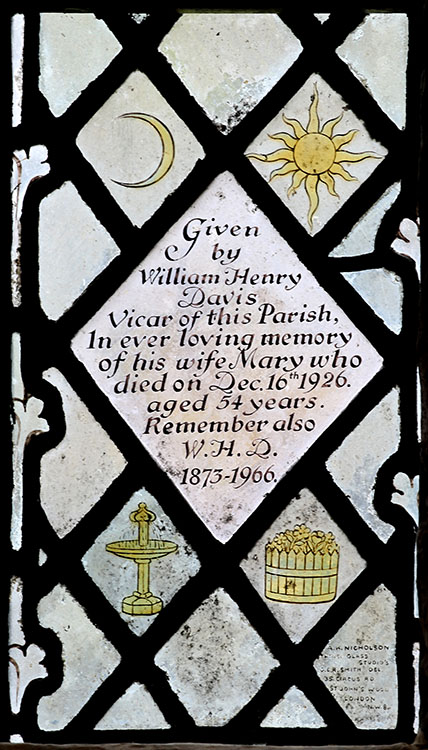 Given
by
William Henry
Davis
Vicar of this Parish,
In ever loving memory
of his wife Mary who
died on Dec. 16th 1926.
aged 54 years.
Remember also
W. H. D.
1873-1966.
A.H. NICHOLSON
GLASS
STUDIOS
G.E.R. SMITH DEL
35 CIRCUS RD
ST JOHN'S WOOD
LONDON
N.W.8.